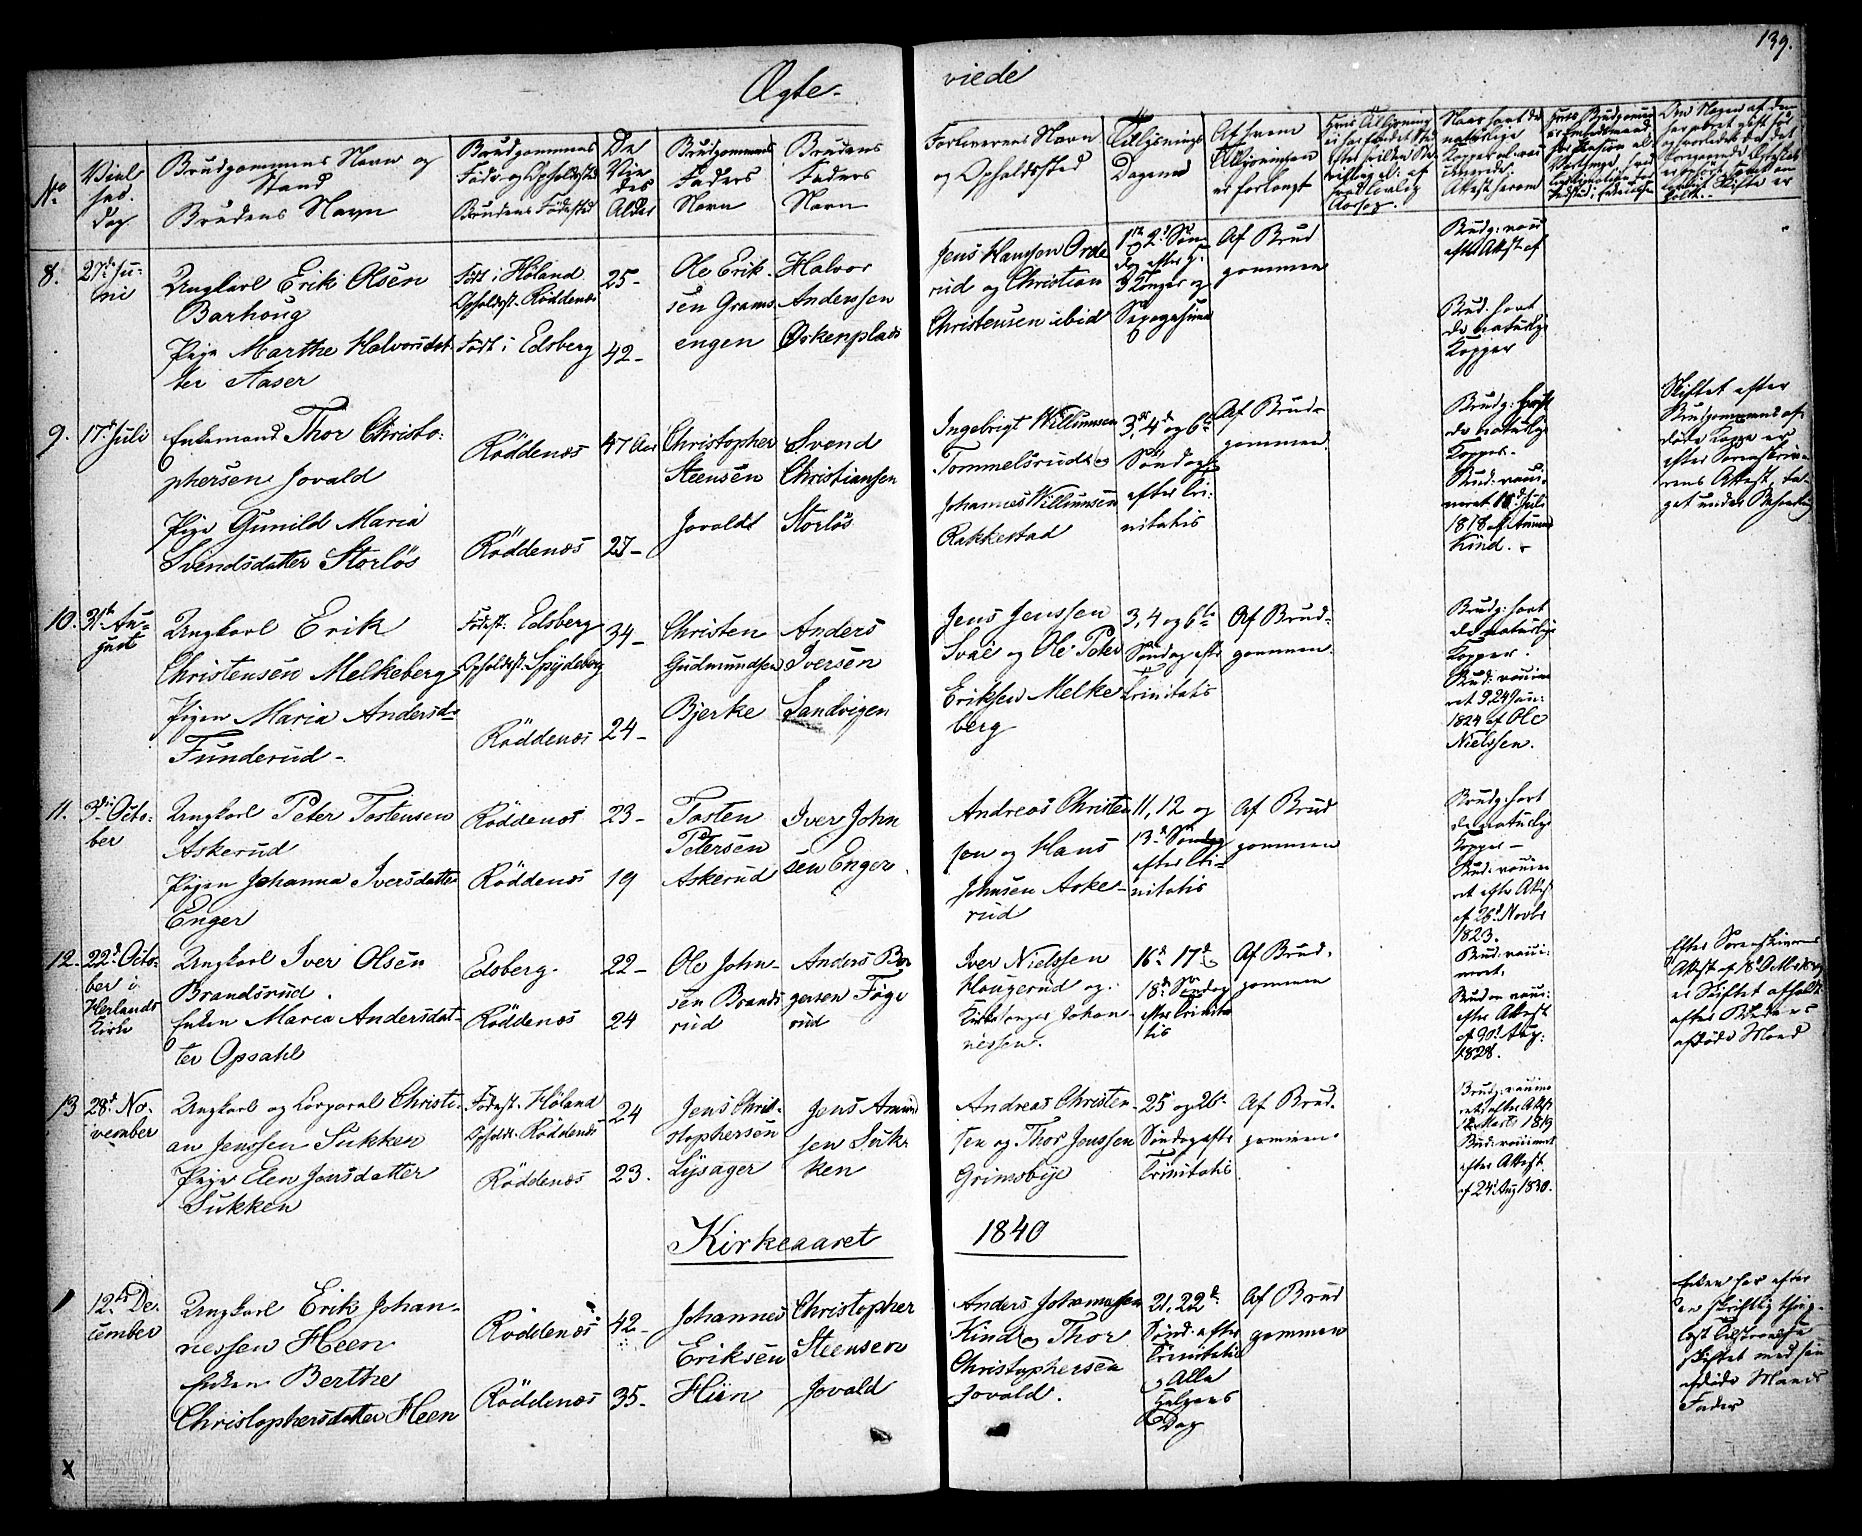 139.
Ægte-
viede
No
Viel
ses.
dag.
Brudgommens Navn og
Stand
Brudens Navn
Brudgommens
Føde- og Opholdssted
Brudens Fødested
De
Vie
des
Alder
Brudgommens
Faders
Navn
Brudens
Faders
Navn
Forlovernes Navn
og Opholdssted
Tillysnings
Dagene
Af hvem
Tillysningen
er forlangt
8.
27de Ju-
ni
Ungkarl Erik Olsen
Barhoug
Pige Marthe Halvorsdat-
ter Aaser
Født i Høland
Opholdst. Röddenæs
Født i Edsberg
25-
42-
Ole Erik-
sen Grams
engen
Halvor
Anderssen
Oskenplads
Jens Hansen Orde
rud og Christian
Christensen ibid
1ste og 2d Søn
dag efter H.
3 Konger og
Af Brud
gommen
Brudg: vacc
efter Attest af
Brud. havt
de naturlige
Kopper
9.
17de Juli
Enkemand Thor Christo-
phersen Jovald
Pige Gunild Maria
Svendsdatter Storlös
Röddenæs
Röddenæs
47 Aar
27-
Christopher
Steensen
Jovaldt
Svend
Christiansen
Storlös
Ingebrigt Willumsen
Tommelsrud og
Johannes Willumsen
Rakkestad
3die, 4de og 6te
Søndag
efter Tri-
nitatis
Af Brud-
gommen
Brudg: havt
de naturlige
Kopper.
Brud: vacci-
neret
1818 af Amund
Kind.
Skiftet efter
Brudgommens af-
døde Kone er
efter Sorenskrive-
rens Attest, ta-
get under Behandling
10.
31te Au-
gust
Ungkarl Erik
Christensen Melkeberg
Pigen Maria Andersd-
Funderud-
Fødest: Edsberg
Opholdst. Spydeberg
Röddenæs
34-
24-
Christen
Gudmundsen
Bjerke
Anders
Iversen
Sandvigen
Jens Jenssen
Svae og Ole Peter
Eriksen Melke
berg
3, 4 og 6te
Søndag eftr
Trinitatis
Af Brud-
gommen.
Brudg: havt
de naturlige
Kopper.
Brud: vaccine
ret d 24 Jun:
1824 af Ole
Nielssen.
11.
3die Octo-
ber
Ungkarl Peter Tostensen
Askerud
Pigen Johanna Iversdatter
Enger
Röddenæs
Röddenæs
23-
19
Tosten
Petersen
Askerud
Iver John
sen Enger
Andreas Christen
sen og Hans
Johnsen Aske-
rud
11, 12 og
13de Søndag
efter Tri-
nitatis
Af Brud
gommen
Brudg: havt
de naturlige
Kopper-
Brud: vaccine
ret efter Attest
af 26d Novbr
1823.
12.
22de Octo-
ber i
Herlands
Kirke
Ungkarl Iver Olsen
Brandsrud.
Enken Maria Andersdat-
ter Opsahl
Edsberg.
Röddenæs
22-
24
Ole John-
sen Brands
rud
Anders Bor
gersen Föge
rud
Iver Nielssen
Hougerud og
Johan-
nessen.
16de 17de
18de Søndag
efter Trinita
tis
Af Brud-
gommen
Brud: vacci-
neret.
Bruden vacci:
efter Attest
af 90d Aug:
1828.
Efter Sorenskriverens
Attest af
er Skiftet afholdt
efter Brudens
afdøde Mand
13
28de No-
vember
Ungkarl og Corporal Christi-
an Jenssen Sukken
Pige Elen Jensdatter
Sukken
Fødest. Höland
Opholdst. Röddenæs
Röddenæs
24
23.
Jens Chri-
stophersen
Lysager
Jens Amund
sen Suk-
ken
Andreas Christen-
sen og Thor Jenssen
Grimsbye
25 og 26de
Søndag eftr
Trinitatis
Af Brud-
gommen.
Brudg: vaccine
ret efter Attest
12 Marts 1819
Brud: vaccineret
efter Attest
af 24 Aug 1830.
Kirkeaaret
1840
1
12te De-
cember
Ungkarl Erik Johan-
nessen Heen
Enken Berthe
Christophersdatter Heen
Röddenæs
Röddenæs
42-
35-
Johannes
Eriksen
Hien
Christopher
Steensen
Jovald
Anders Johannessen
Kind og Thor
Christophersen
Jovald.
21, 22de
Sönd: efter
Trinitatis
og Alle
Helgens
Dag
Af Brud
gommen
Enken har efter
en skriftlig thing-
læst Tilstaaelse
skiftet med sin
afdøde Mands
Fader
x